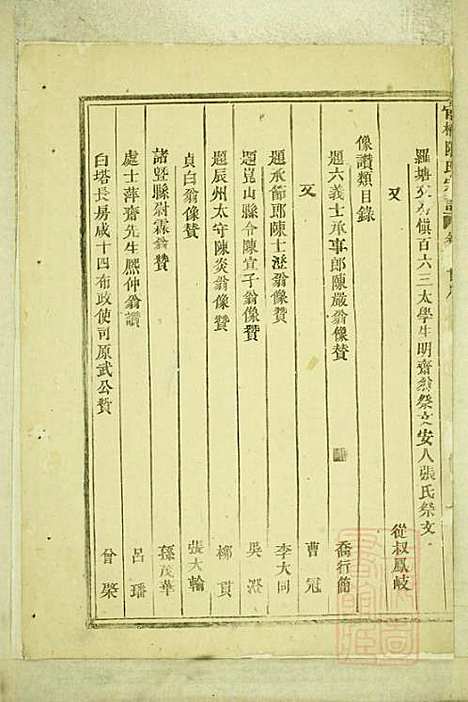 羅塘文房慎百六三太學生明齋翁祭文安人張氏祭文
又 從叔鳳岐
像讚類目錄
題六義士承事郎陳嚴翁像贊 喬行簡
又 曹冠
題承節郎陳士澄翁像贊 李大同
題崑山縣令陳宣子翁像贊 吳澄
題辰州太守陳炎翁像贊 柳貫
貞白翁像贊 張大輪
諸暨縣尉霖翁贊 孫茂華
處士萍齋先生熙仲翁讚 呂璠
白塔長房咸十四布政使司原武公贊 曾棨